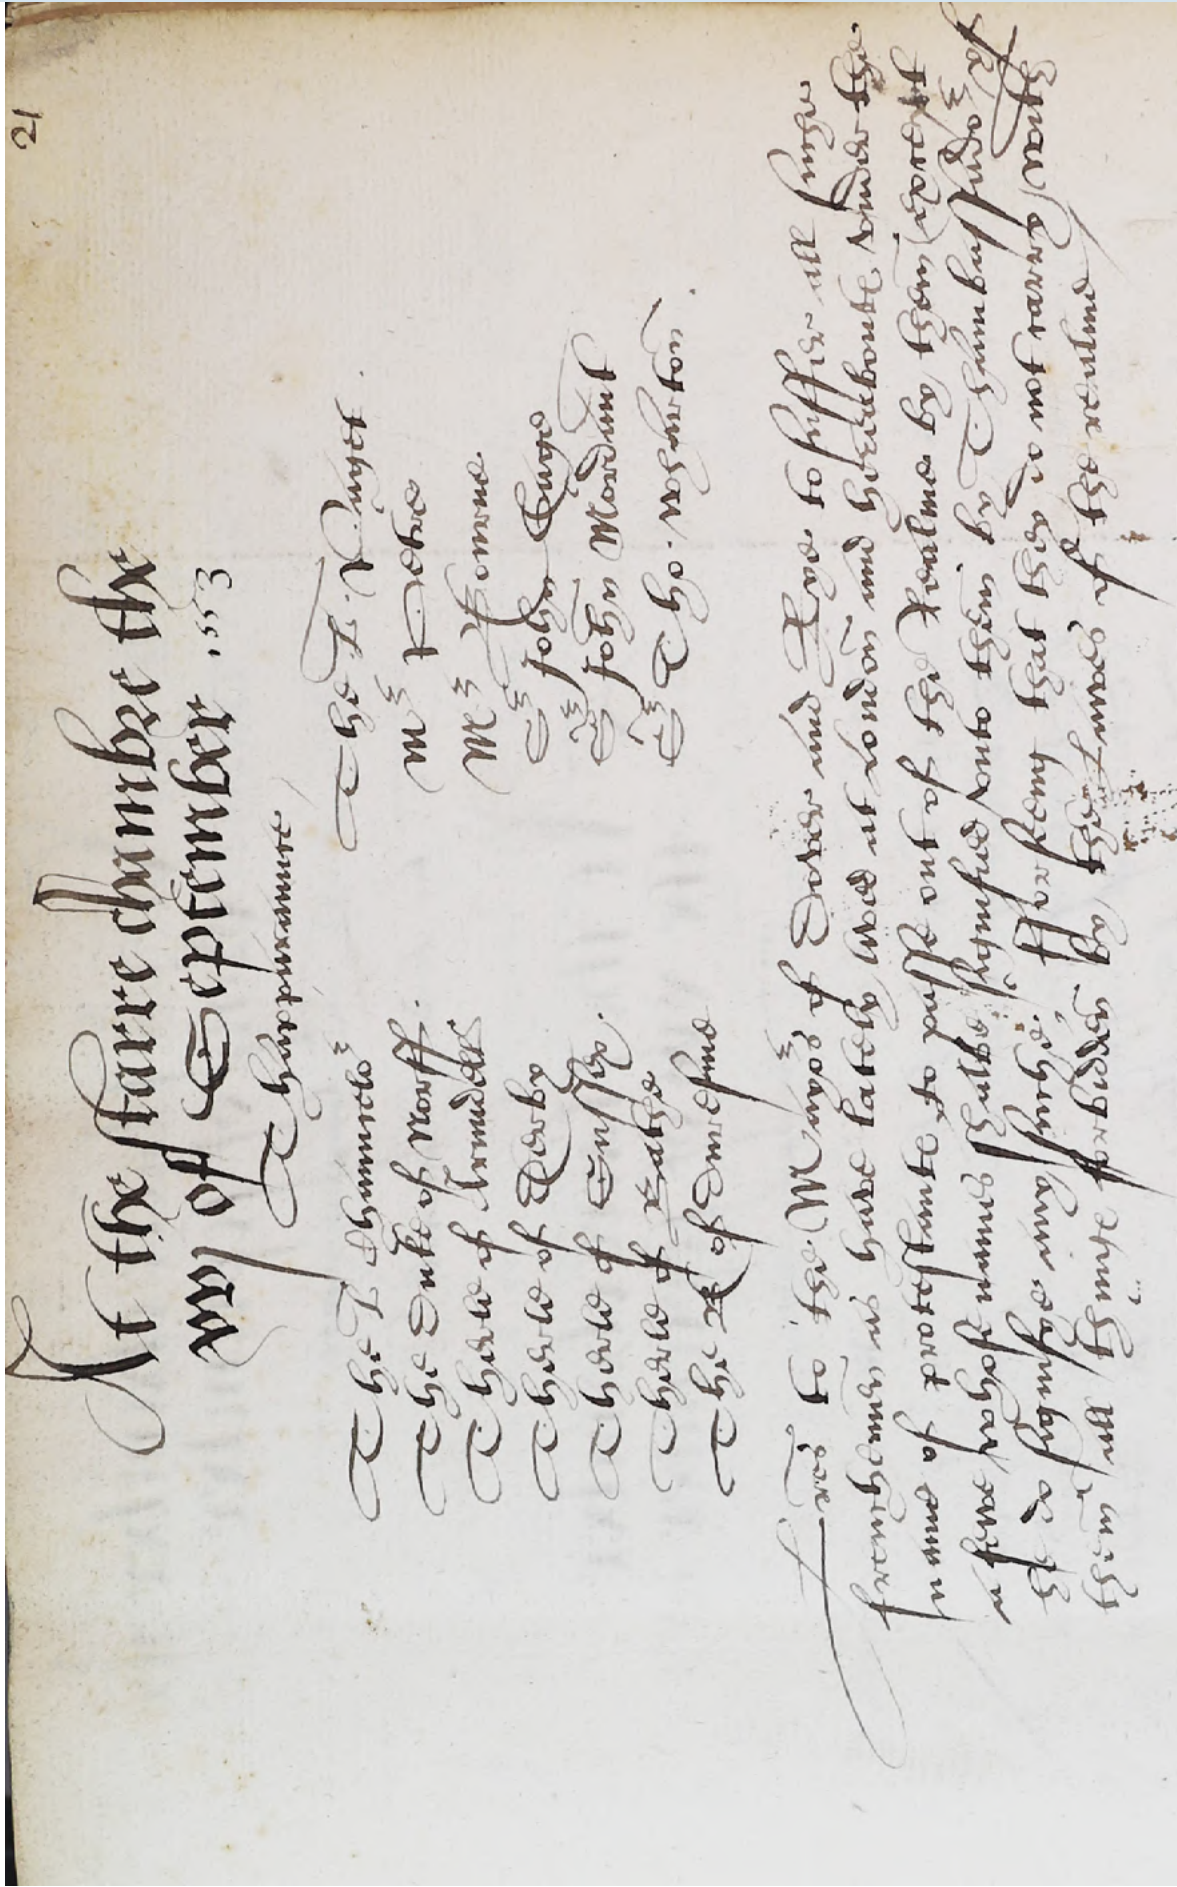 21
At the starre chambre the
xvj of September .1553
Thapparannce
The L Chauncelor
The Duke of Norff.
Therle of Arundell
Therle of Derby
Therle of Sussex.
Therle of Bathe
The of Duresme
The L. Pagett.
Mr Petre
Mr Bourne
Sr John Gage
Sr John Mordaunt
Sr Tho. wharton
tres to the Mayors of Dover and Rye to suffer all suche
frenchemen as have lately lyved at London and hereaboute under the
name of protestants to passe out of the Realme by them, except
a fewe whose names shalbe signifyed unto them by Thimbassador if
he do signifye any suche. Forseing that they do not carry awaye
them all things forbidden by the lawes of the realme